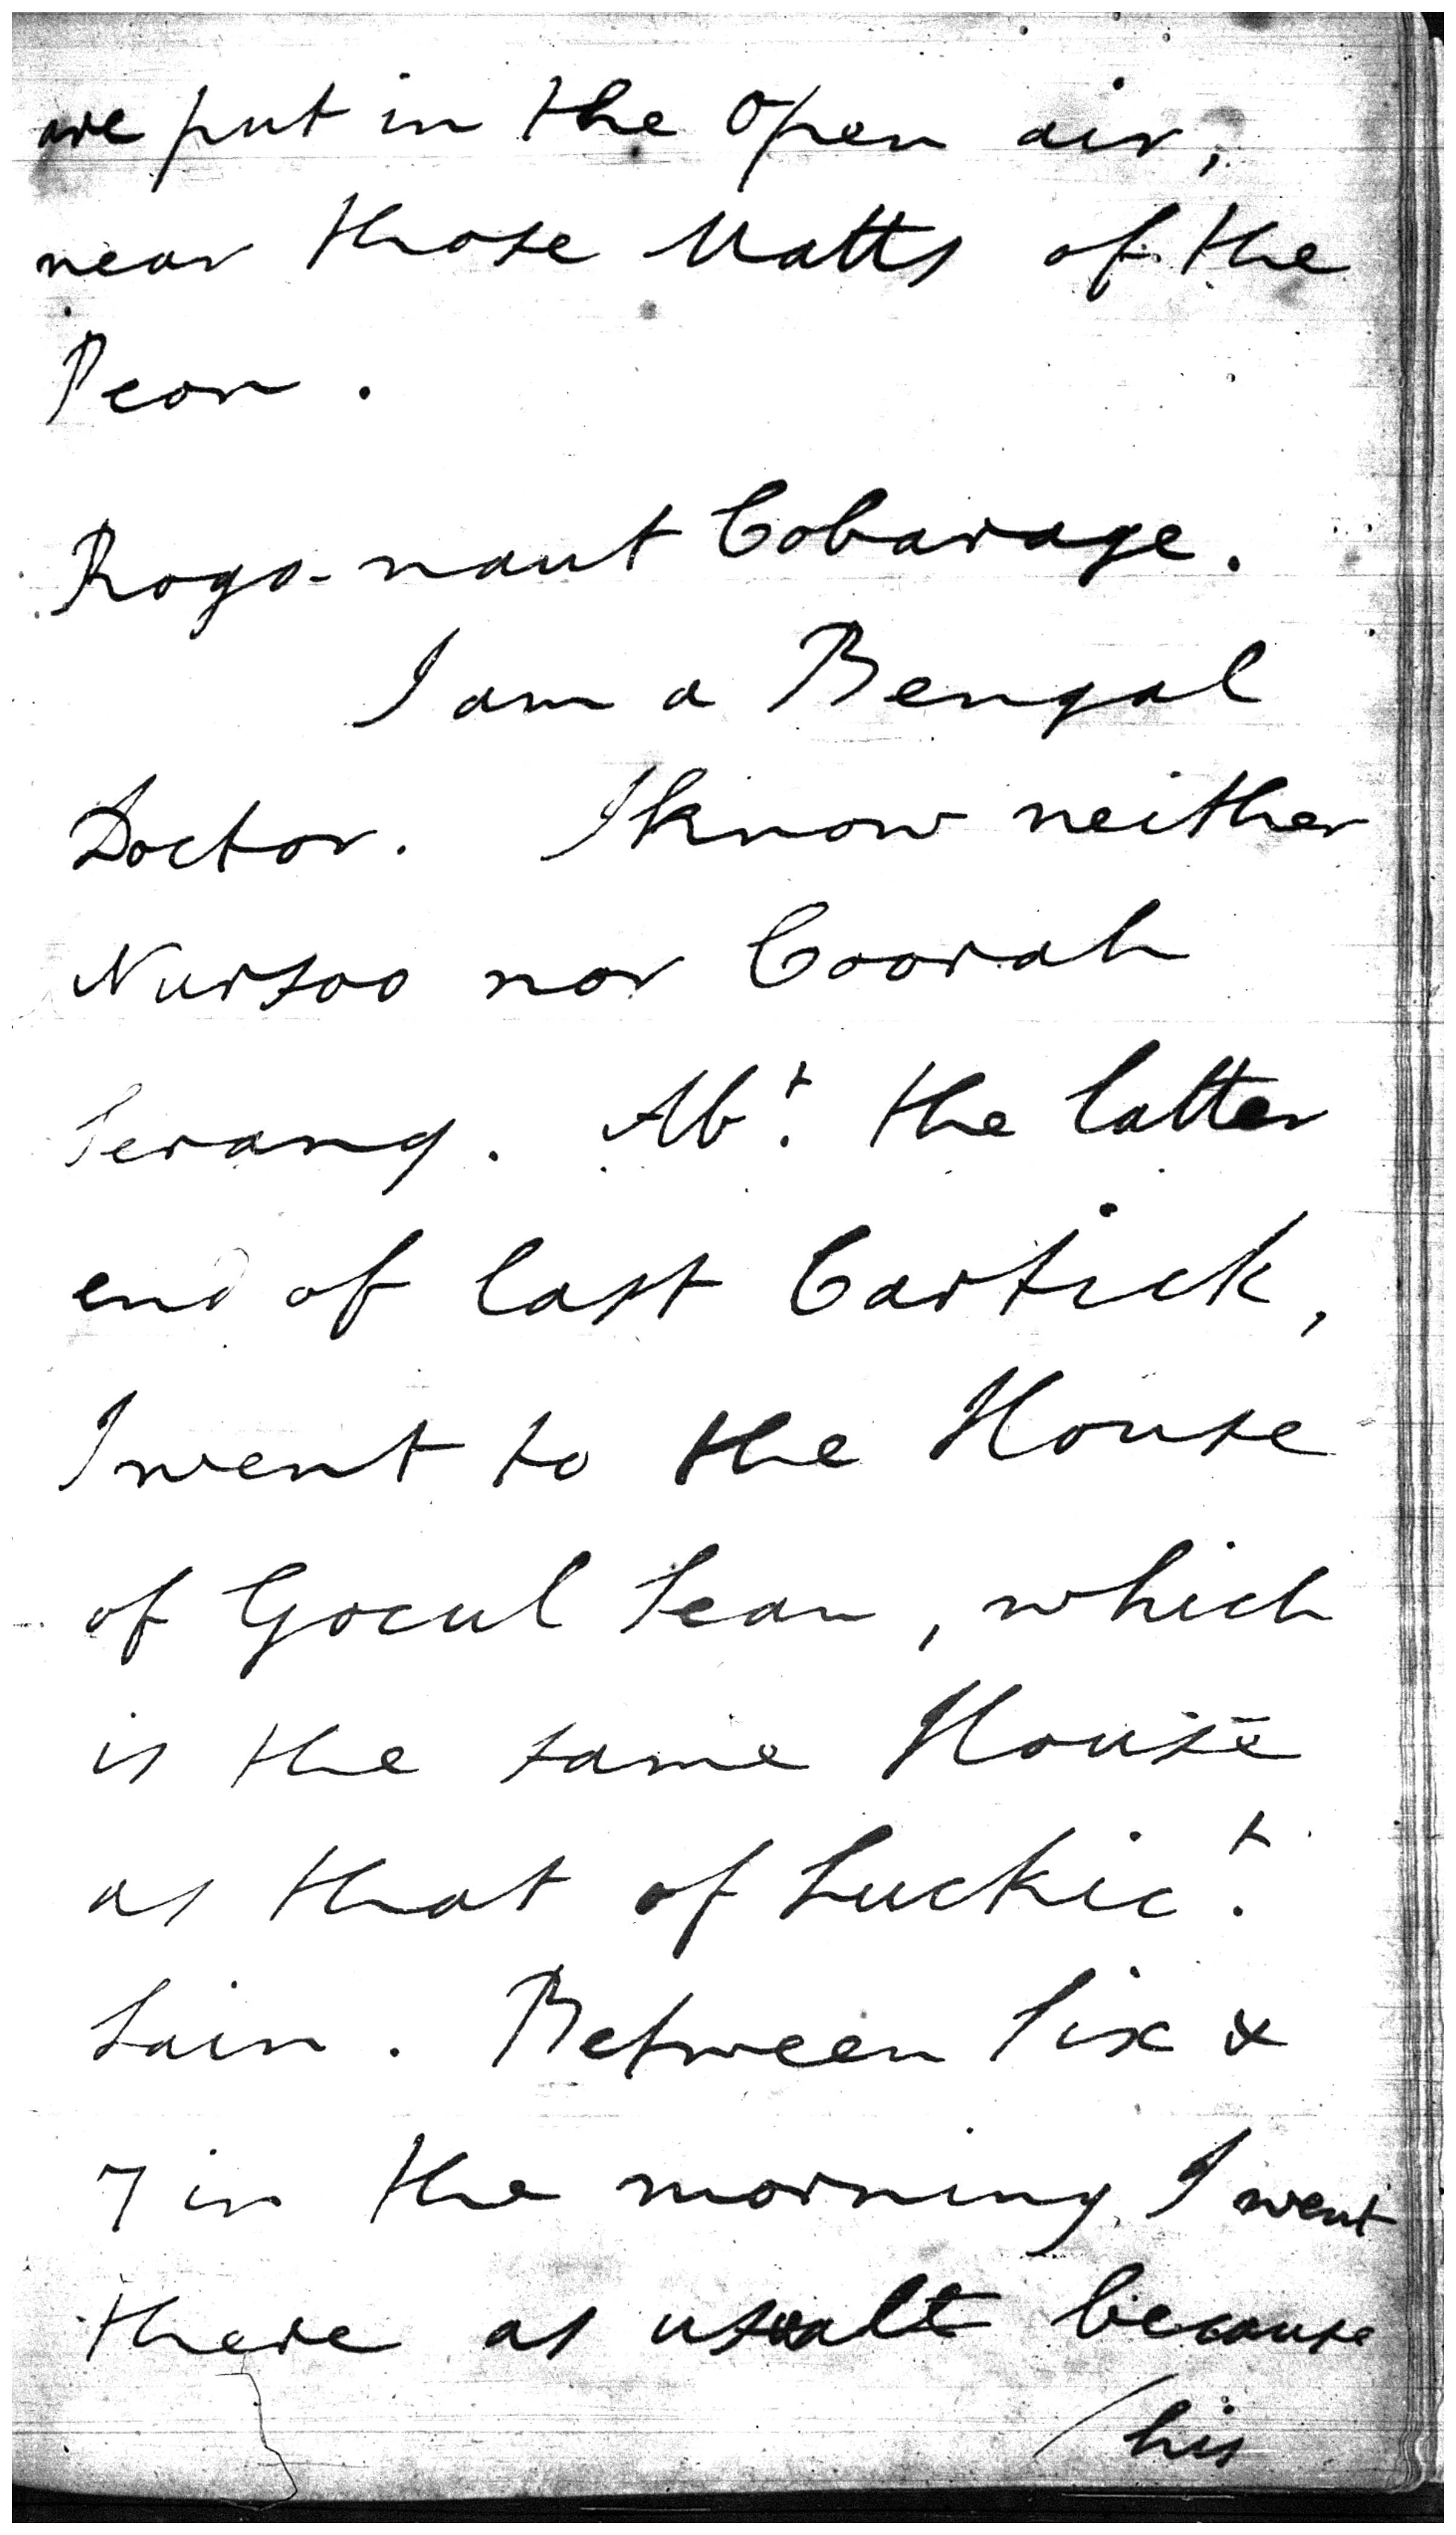 are put in the open air,
near those Matts of the
Peon.
Rogo-naut Cobarage.
I am a Bengal
Doctor. I know neither
Nursoo nor Coorah
Serang. Abt. the latter
end of last Cartick,
I went to the House
of Gocul Sean, which
is the same House
as that of Luckict.
Sain. Between Six &
7 in the morning I went
there as usual because
/his